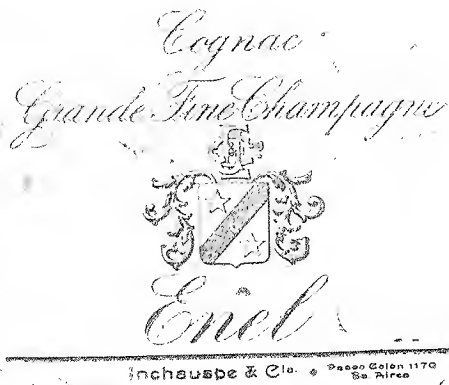 Cognac
Grande Fine Champagne
Enel
Inchauspe & Cia. • Paseo Colón 1170
Bs. Aires